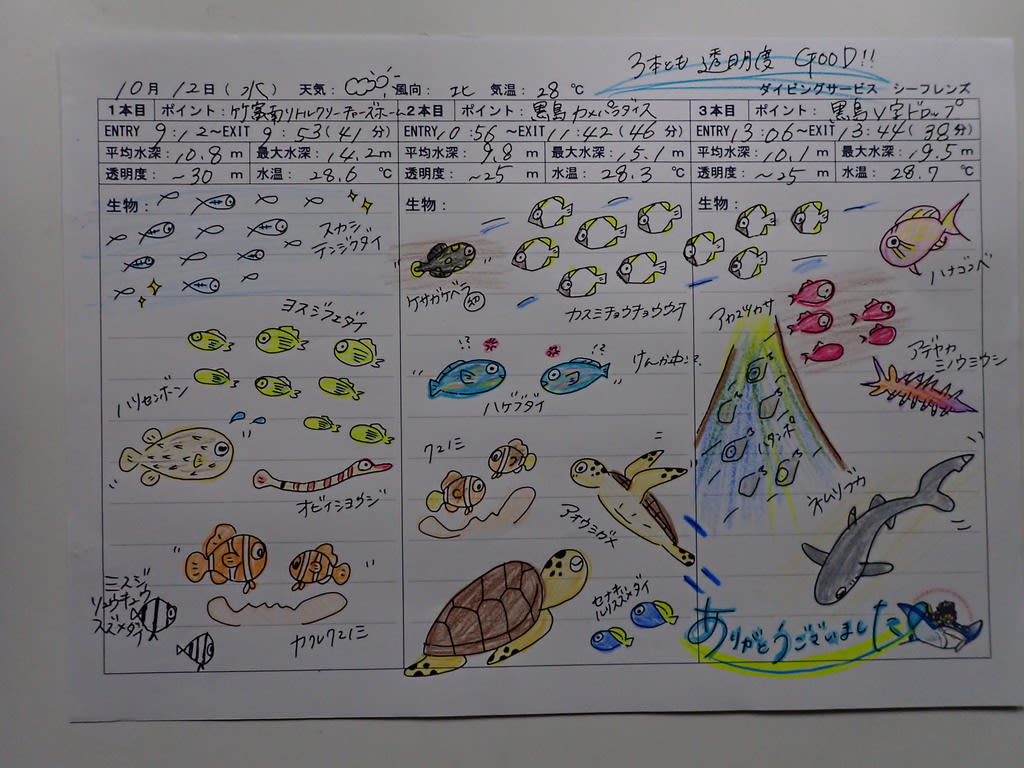 3本とも 透明度 GOOD!!
10月 12日(水) 天気: 風向: 北 気温: 28 ℃ ダイビングサービス シーフレンズ
1本目 ポイント: 竹富南リトルクリーナーズホーム
ENTRY 9:12~EXIT 9:53(41分)
平均水深: 10.8 m 最大水深: 14.2 m
透明度: ~30 m 水温: 28.6 ℃
生物:
スカシ
テンジクダイ
ヨスジフエダイ
ハリセンボン
オビイシヨウジ
カクレクマノミ
ミスジ
リュウキュウ
スズメダイ
2本目 ポイント: 黒島カメパラダイス
ENTRY 10:56~EXIT 11:42(46分)
平均水深: 9.8 m 最大水深: 15.1 m
透明度: ~25 m 水温: 28.3 ℃
生物:
ケサガケベラ 幼
カスミチョウチョウウオ
!? !?
けんか中!?
ハゲブダイ
クマノミ
アオウミガメ
セナキ
ルリスズメダイ
3本目 ポイント: 黒島V字ドロップ
ENTRY 13:06~EXIT 13:44(38分)
平均水深: 10.1 m 最大水深: 19.5 m
透明度: ~25 m 水温: 28.7 ℃
生物:
ハナゴンベ
アカマツカサ
アデヤカ
ミノウミウシ
ハタンポ
ネムリブカ
ありがとうございました